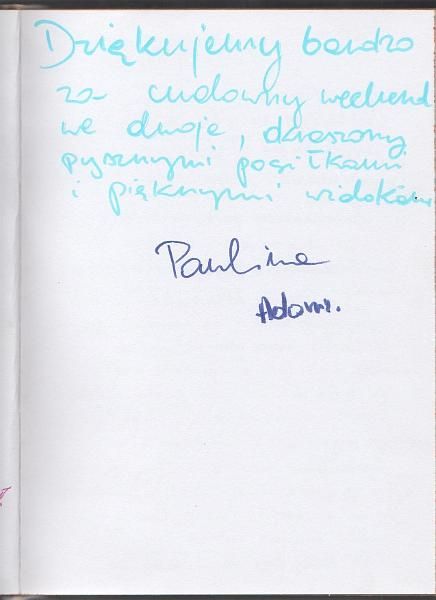 Dziękujemy bardzo
za cudowny weekend
we dwoje, okraszony
pysznymi posiłkami
i pięknymi widokami
Paulina
Adam.